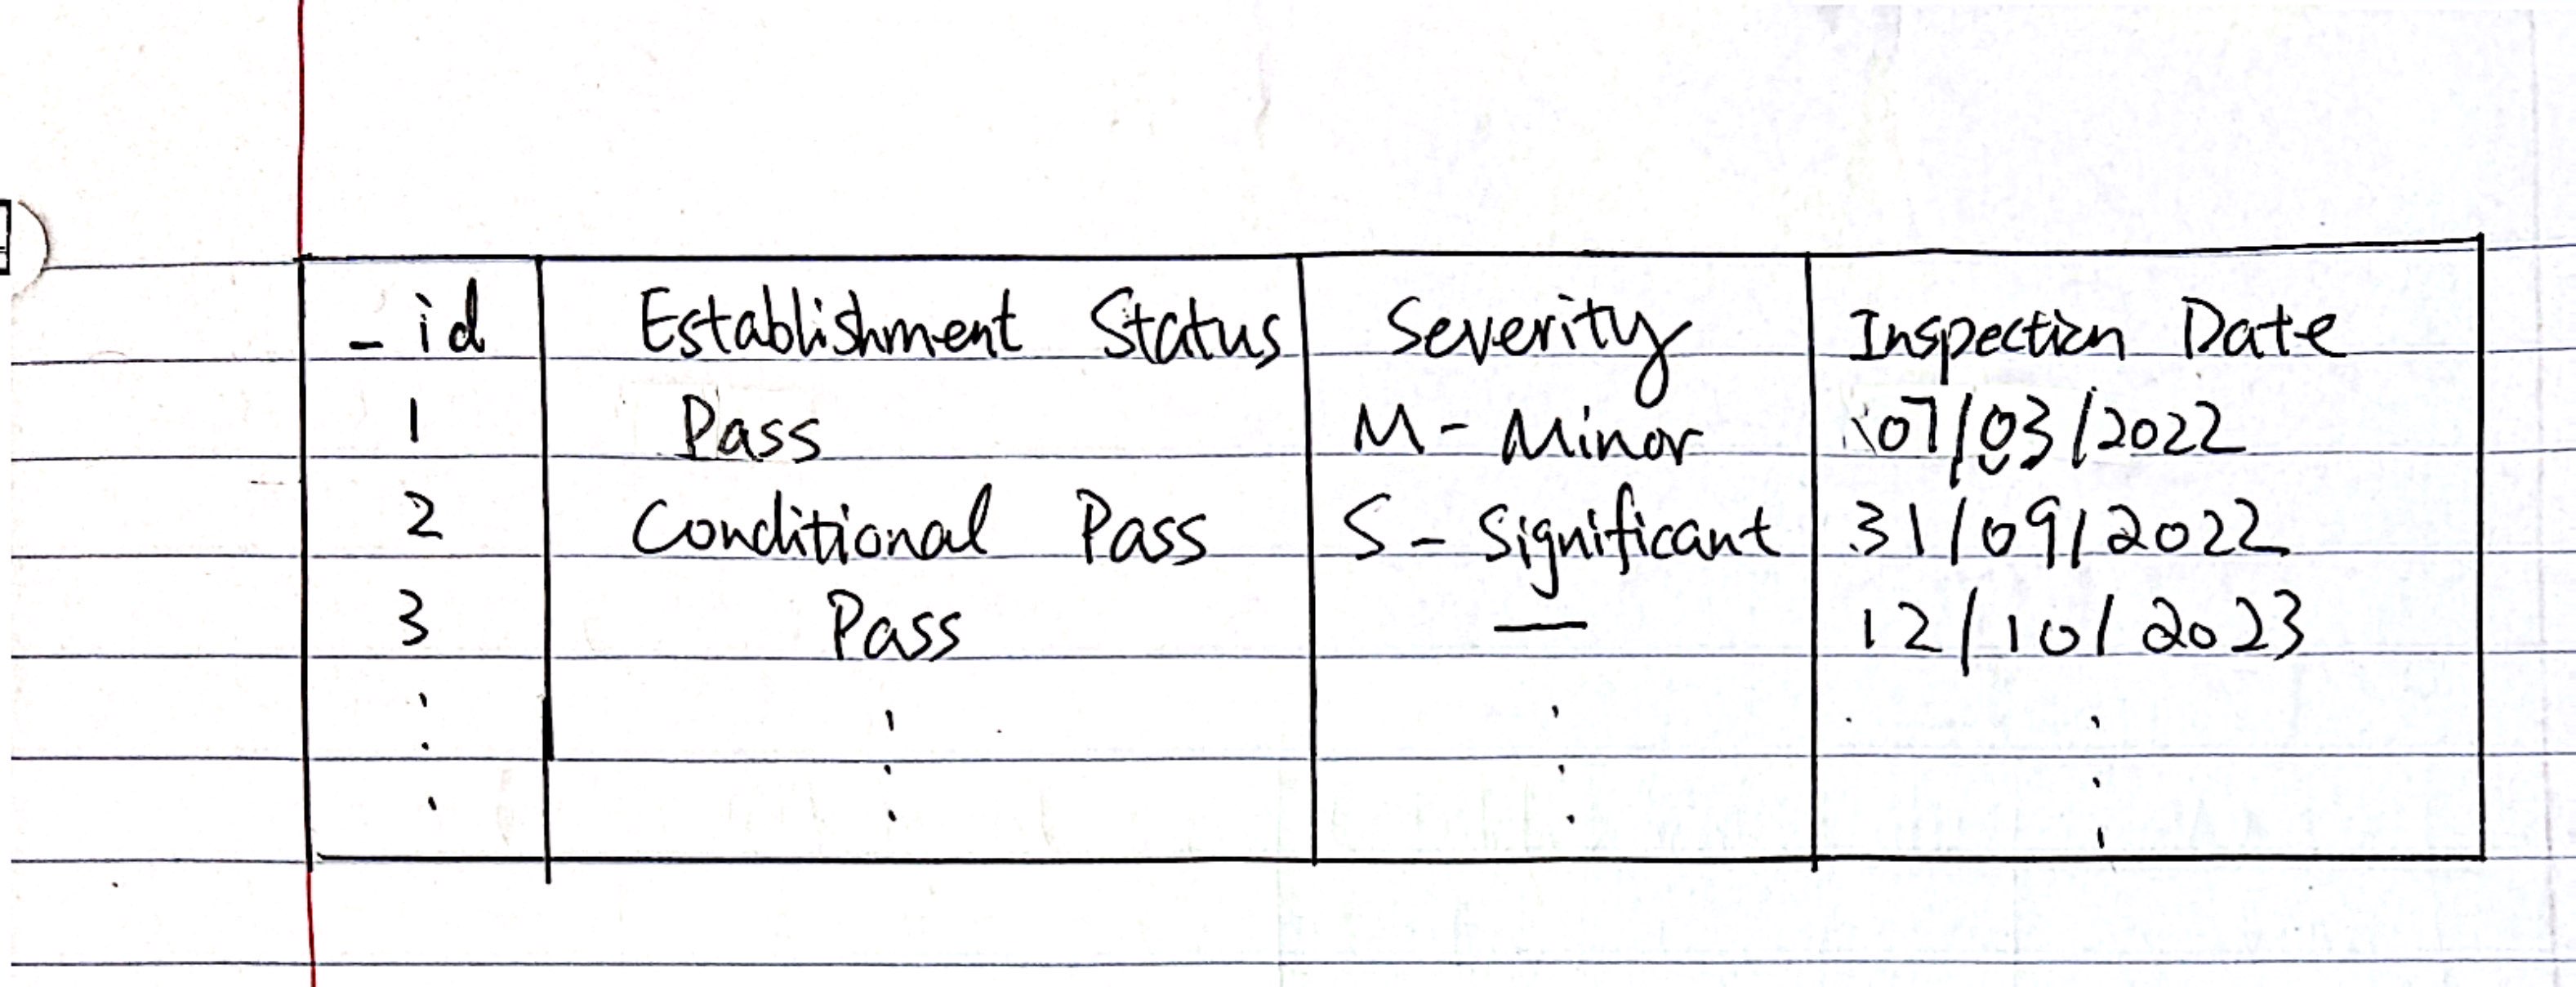 _id Establishment Status Severity Inspection Date
1 Pass M - Minor 07/03/2022
2 Conditional Pass S - Significant 31/09/2022
3 Pass — 12/10/2023